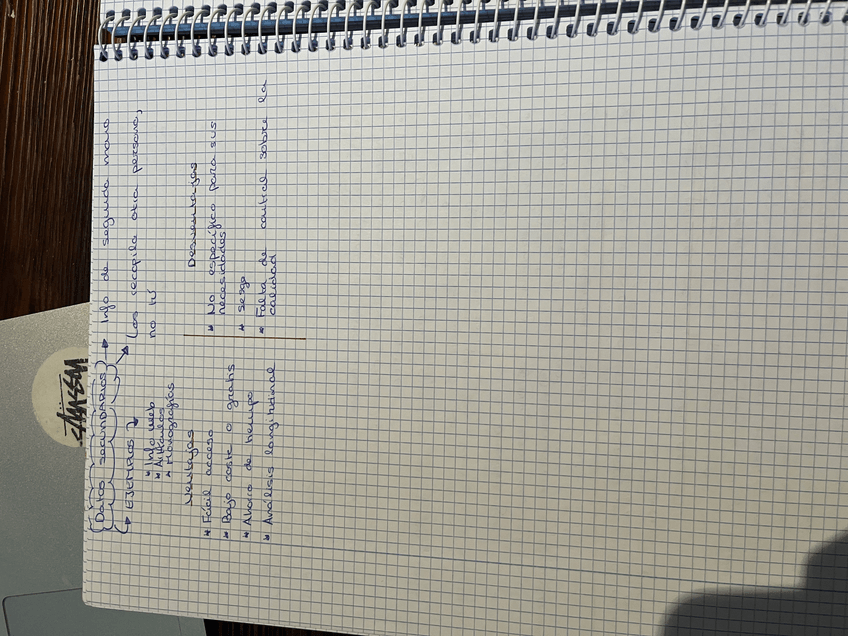 DATOS SECUNDARIOS → Info de segunda mano
Los recopila otra persona,
no tú
EJEMPLOS
* Info web
* Artículos
* Monografías
Ventajas
* Fácil acceso
* Bajo coste o gratis
* Ahorro de tiempo
* Análisis longitudinal
Desventajas
* No específico para sus
necesidades
* sesgo
* Falta de control sobre la
calidad
STÜSSY